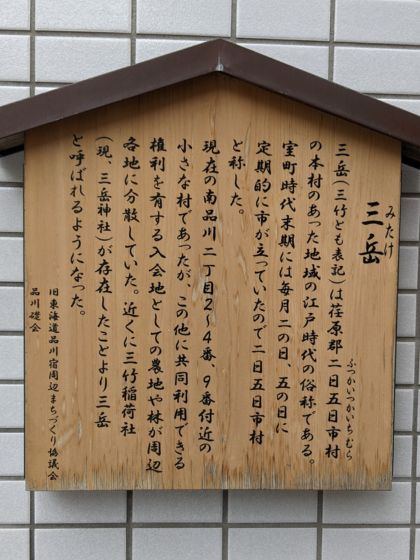 みたけ
三岳
三岳(三竹とも表記)は荏原郡二日五日市村
ふつかいつかいちむら
の本村のあった地域の江戸時代の俗称である。
室町時代末期には毎月二の日、五の日に
定期的に市が立っていたので二日五日市村
と称した。
現在の南品川二丁目2〜4番、9番付近の
小さな村であったが、この他に共同利用できる
権利を有する入会地としての農地や林が周辺
各地に分散していた。近くに三竹稲荷社
(現、三岳神社)が存在したことより三岳
と呼ばれるようになった。
旧東海道品川宿周辺まちづくり協議会
品川礎会